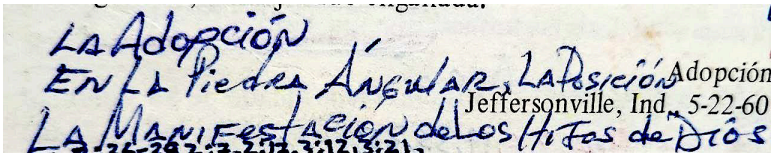 LA Adopción
EN LA Piedra Angular, La Posición
Adopción
Jeffersonville, Ind., 5-22-60
LA Manifestación de Los Hijos de Dios